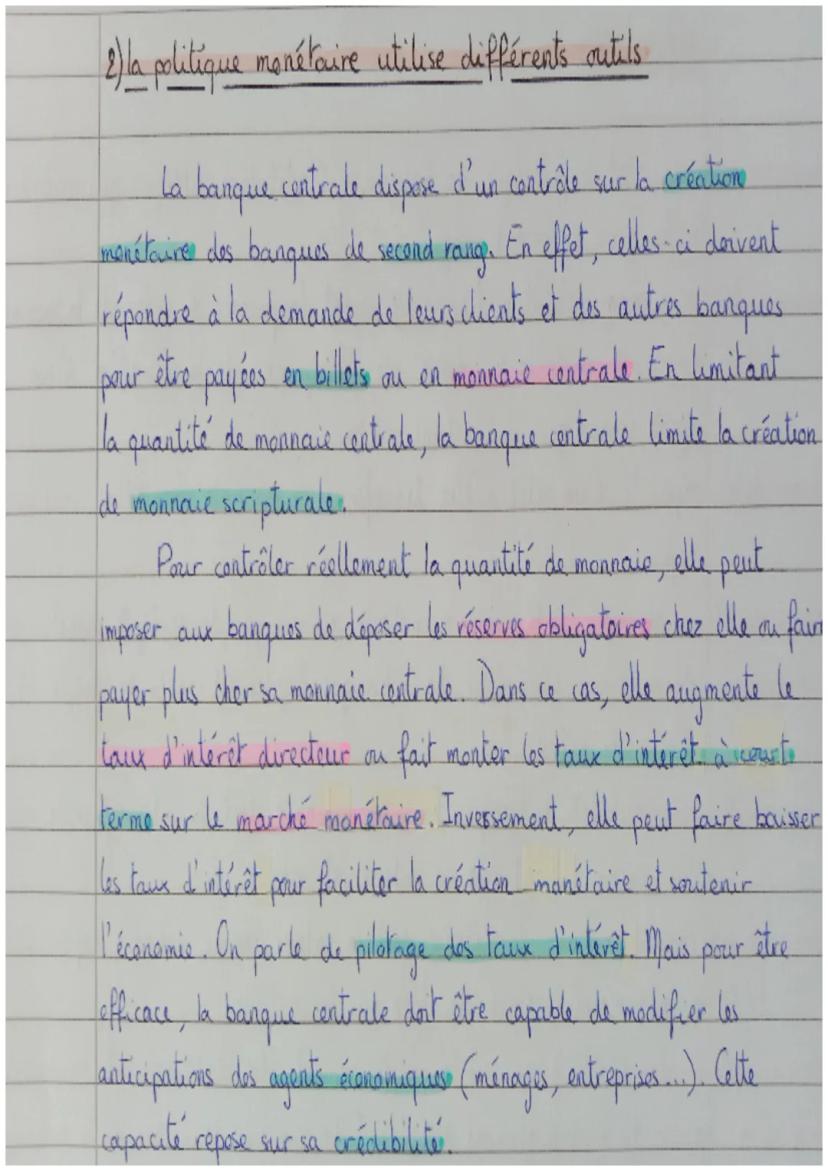 2) la politique monétaire utilise différents outils
La banque centrale dispose d'un contrôle sur la création
monétaire des banques de second rang. En effet, celles-ci doivent
répondre à la demande de leurs clients et des autres banques
pour être payées en billets ou en monnaie centrale. En limitant
la quantité de monnaie centrale, la banque centrale limite la création
de monnaie scripturale.
Pour contrôler réellement la quantité de monnaie, elle peut
imposer aux banques de déposer les réserves obligatoires chez elle ou fair
payer plus cher sa monnaie centrale. Dans ce cas, elle augmente le
taux d'intérêt directeur ou fait monter les taux d'intérêt à court
terme sur le marché monétaire. Inversement, elle peut faire baisser
les taux d'intérêt pour faciliter la création monétaire et soutenir
l'économie. On parle de pilotage des taux d'intérêt. Mais pour être
efficace, la banque centrale doit être capable de modifier les
anticipations des agents économiques (ménages, entreprises...). Cette
capacité repose sur sa crédibilité.